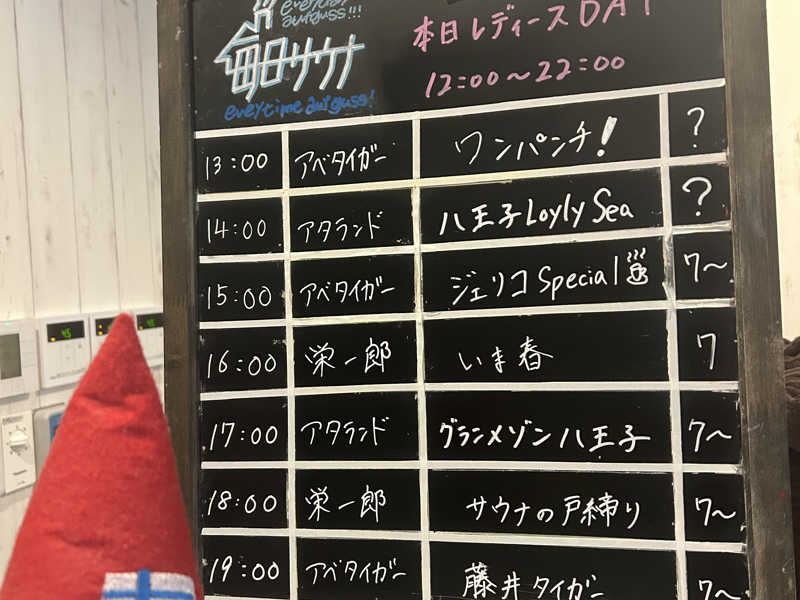 everyday
aufguss!!!
毎日サウナ
everytime aufguss!
本日レディースDAY
12:00〜22:00
13:00 アベタイガー ワンパンチ! ?
14:00 アタランド 八王子Loyly Sea ?
15:00 アベタイガー ジェリコSpecial♨ 7〜
16:00 栄一郎 いま春 7
17:00 アタランド グランメゾン八王子 7〜
18:00 栄一郎 サウナの戸締り 7〜
19:00 アベタイガー 藤井タイガー 7〜